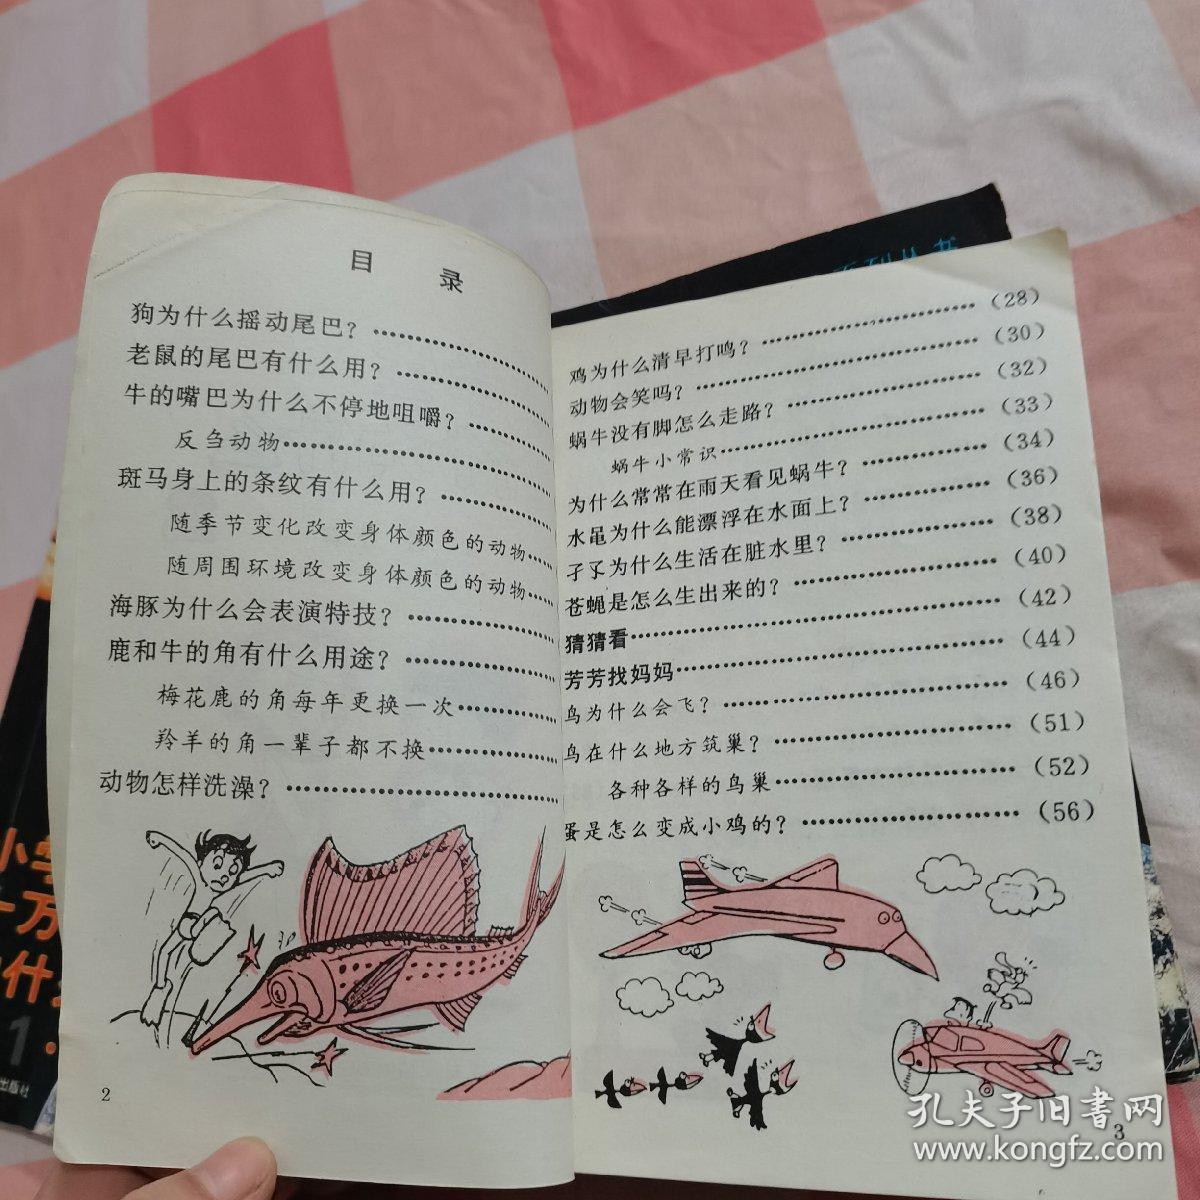 目 录
狗为什么摇动尾巴？……………
老鼠的尾巴有什么用？……………
牛的嘴巴为什么不停地咀嚼？…………
反刍动物……………………
斑马身上的条纹有什么用？…………
随季节变化改变身体颜色的动物……
随周围环境改变身体颜色的动物……
海豚为什么会表演特技？……………
鹿和牛的角有什么用途？……………
梅花鹿的角每年更换一次…………
羚羊的角一辈子都不换……………
动物怎样洗澡？……………………
2
鸡为什么清早打鸣？……………………（28）
动物会笑吗？……………………（30）
蜗牛没有脚怎么走路？……………………（32）
蜗牛小常识……………………（33）
为什么常常在雨天看见蜗牛？……………（34）
水黾为什么能漂浮在水面上？……………（36）
孑孓为什么生活在脏水里？……………（38）
苍蝇是怎么生出来的？……………………（40）
猜猜看……………………（42）
芳芳找妈妈……………………（44）
鸟为什么会飞？……………………（46）
鸟在什么地方筑巢？……………………（51）
各种各样的鸟巢……………………（52）
蛋是怎么变成小鸡的？……………………（56）
3
小学
万
什么
1
出版社
孔夫子旧书网
www.kongfz.com